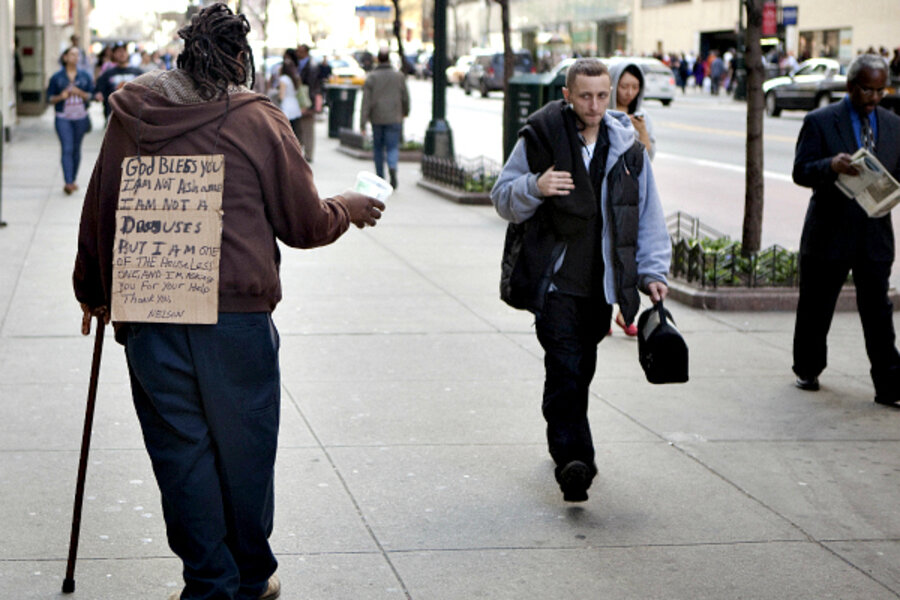 GOD BLESS YOU
I AM NOT
I AM NOT A
DRUGUSES
BUT I AM ONE
OF THE HOUSELESS
ONE, AND I'M ASKING
YOU FOR YOUR HELP
THANK YOU
NELSON